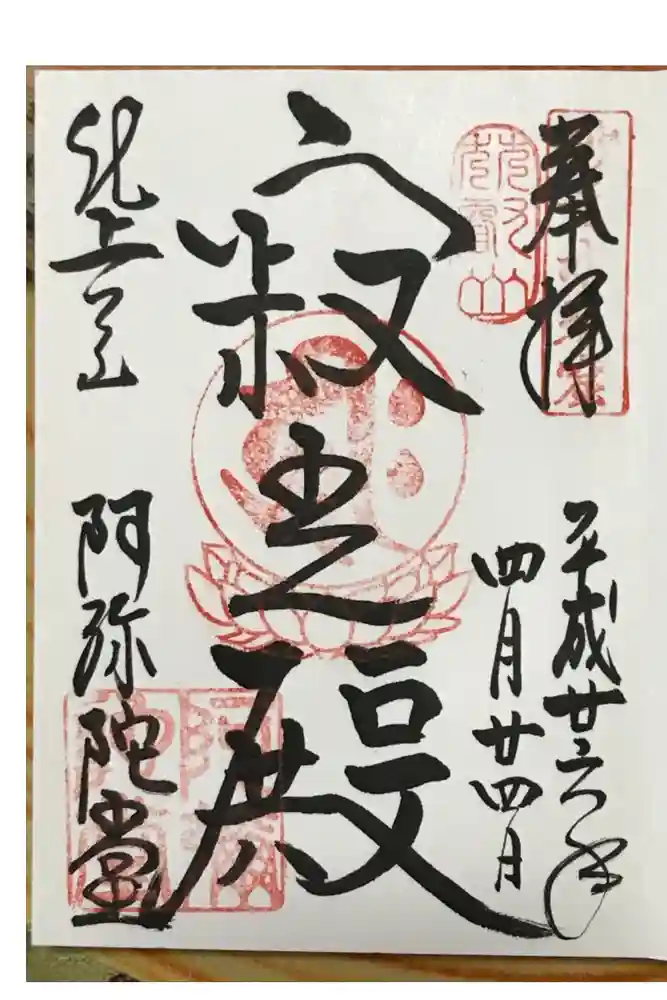 奉拝
平成廿六年
四月廿四日
寂光殿
比叡山
阿弥陀堂